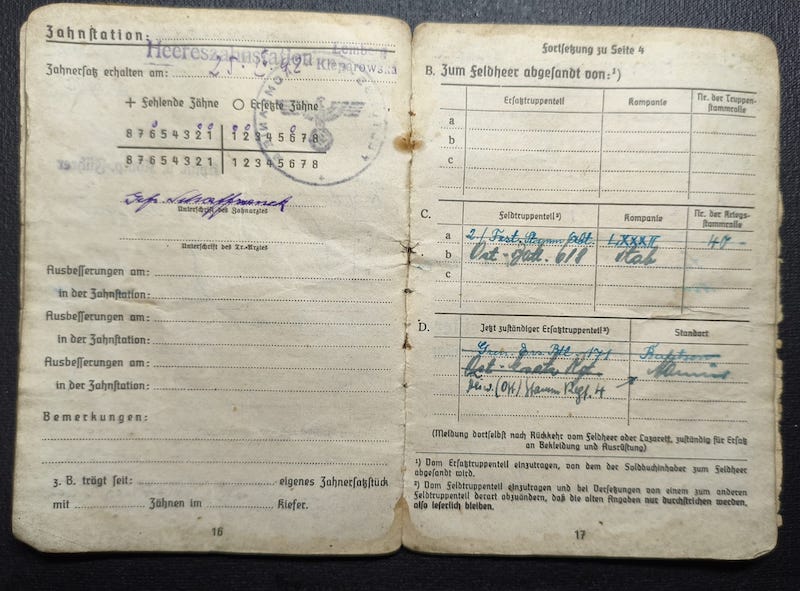 Zahnstation:
Heereszahnstation Lemberg
Kleparowska
Zahnersatz erhalten am: 25. 5. 42
+ Fehlende Zähne O Ersetzte Zähne
8 7 6 5 4 3 2 1 | 1 2 3 4 5 6 7 8
8 7 6 5 4 3 2 1 | 1 2 3 4 5 6 7 8
Unterschrift des Zahnarztes
Unterschrift des Tr.-Arztes
Ausbesserungen am:
in der Zahnstation:
Ausbesserungen am:
in der Zahnstation:
Ausbesserungen am:
in der Zahnstation:
Bemerkungen:
z. B. trägt seit: eigenes Zahnersatzstück
mit Zähnen im Kiefer.
16
Fortsetzung zu Seite 4
B. Zum Feldheer abgesandt von:¹)
Ersatztruppenteil Kompanie Nr. der Truppen-
stammrolle
a
b
c
C. Feldtruppenteil²) Kompanie Nr. der Kriegs-
stammrolle
a 2./ Fest. LXXXII 40 -
b Ost - Batl. 618 Stab
c
D. Jetzt zuständiger Ersatztruppenteil²) Standort
171
Ost - Regt
Regt. 4
(Meldung dortselbst nach Rückkehr vom Feldheer oder Lazarett, zuständig für Ersatz
an Bekleidung und Ausrüstung)
¹) Vom Ersatztruppenteil einzutragen, von dem der Soldbuchinhaber zum Feldheer
abgesandt wird.
²) Vom Feldtruppenteil einzutragen und bei Versetzungen von einem zum anderen
Feldtruppenteil derart abzuändern, daß die alten Angaben nur durchstrichen werden,
also leserlich bleiben.
17